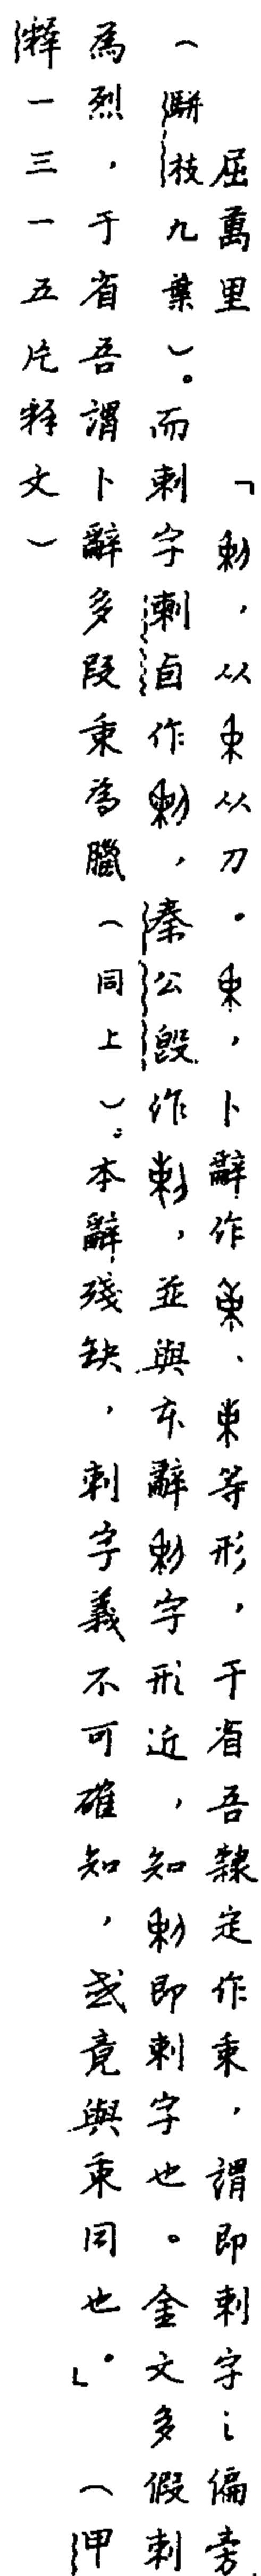 屈萬里　「𠛱，从朿从刀。朿，卜辭作𣐺、朿等形，于省吾隸定作秉，謂即刺字之偏旁
（駢枝九葉）。而刺字刺卣作𠛱，秦公𣪘作刺，並與本辭𠛱字形近，知𠛱即刺字也。金文多假刺
為烈，于省吾謂卜辭多叚秉為臘（同上）。本辭殘缺，刺字義不可確知，或竟與秉同也。」（甲
釋一三一五片釋文）